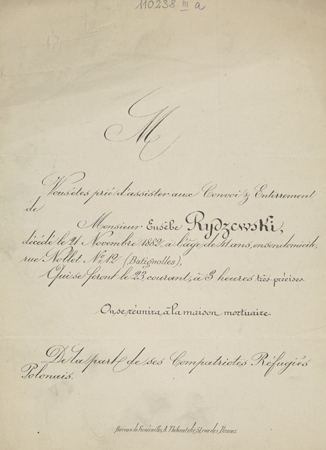 110238 III a
M
Vous êtes prié d'assister aux Convoi & Enterrement
de
Monsieur Eusèbe Rydzewski,
décédé le 21 Novembre 1882 à l'âge de ans, en son domicile,
rue Nollet Nº 12 (Batignolles),
Qui se feront le 23 courant, à 3 heures très précises.
On se réunira à la maison mortuaire.
De la part de ses Compatriotes Réfugiés
Polonais.